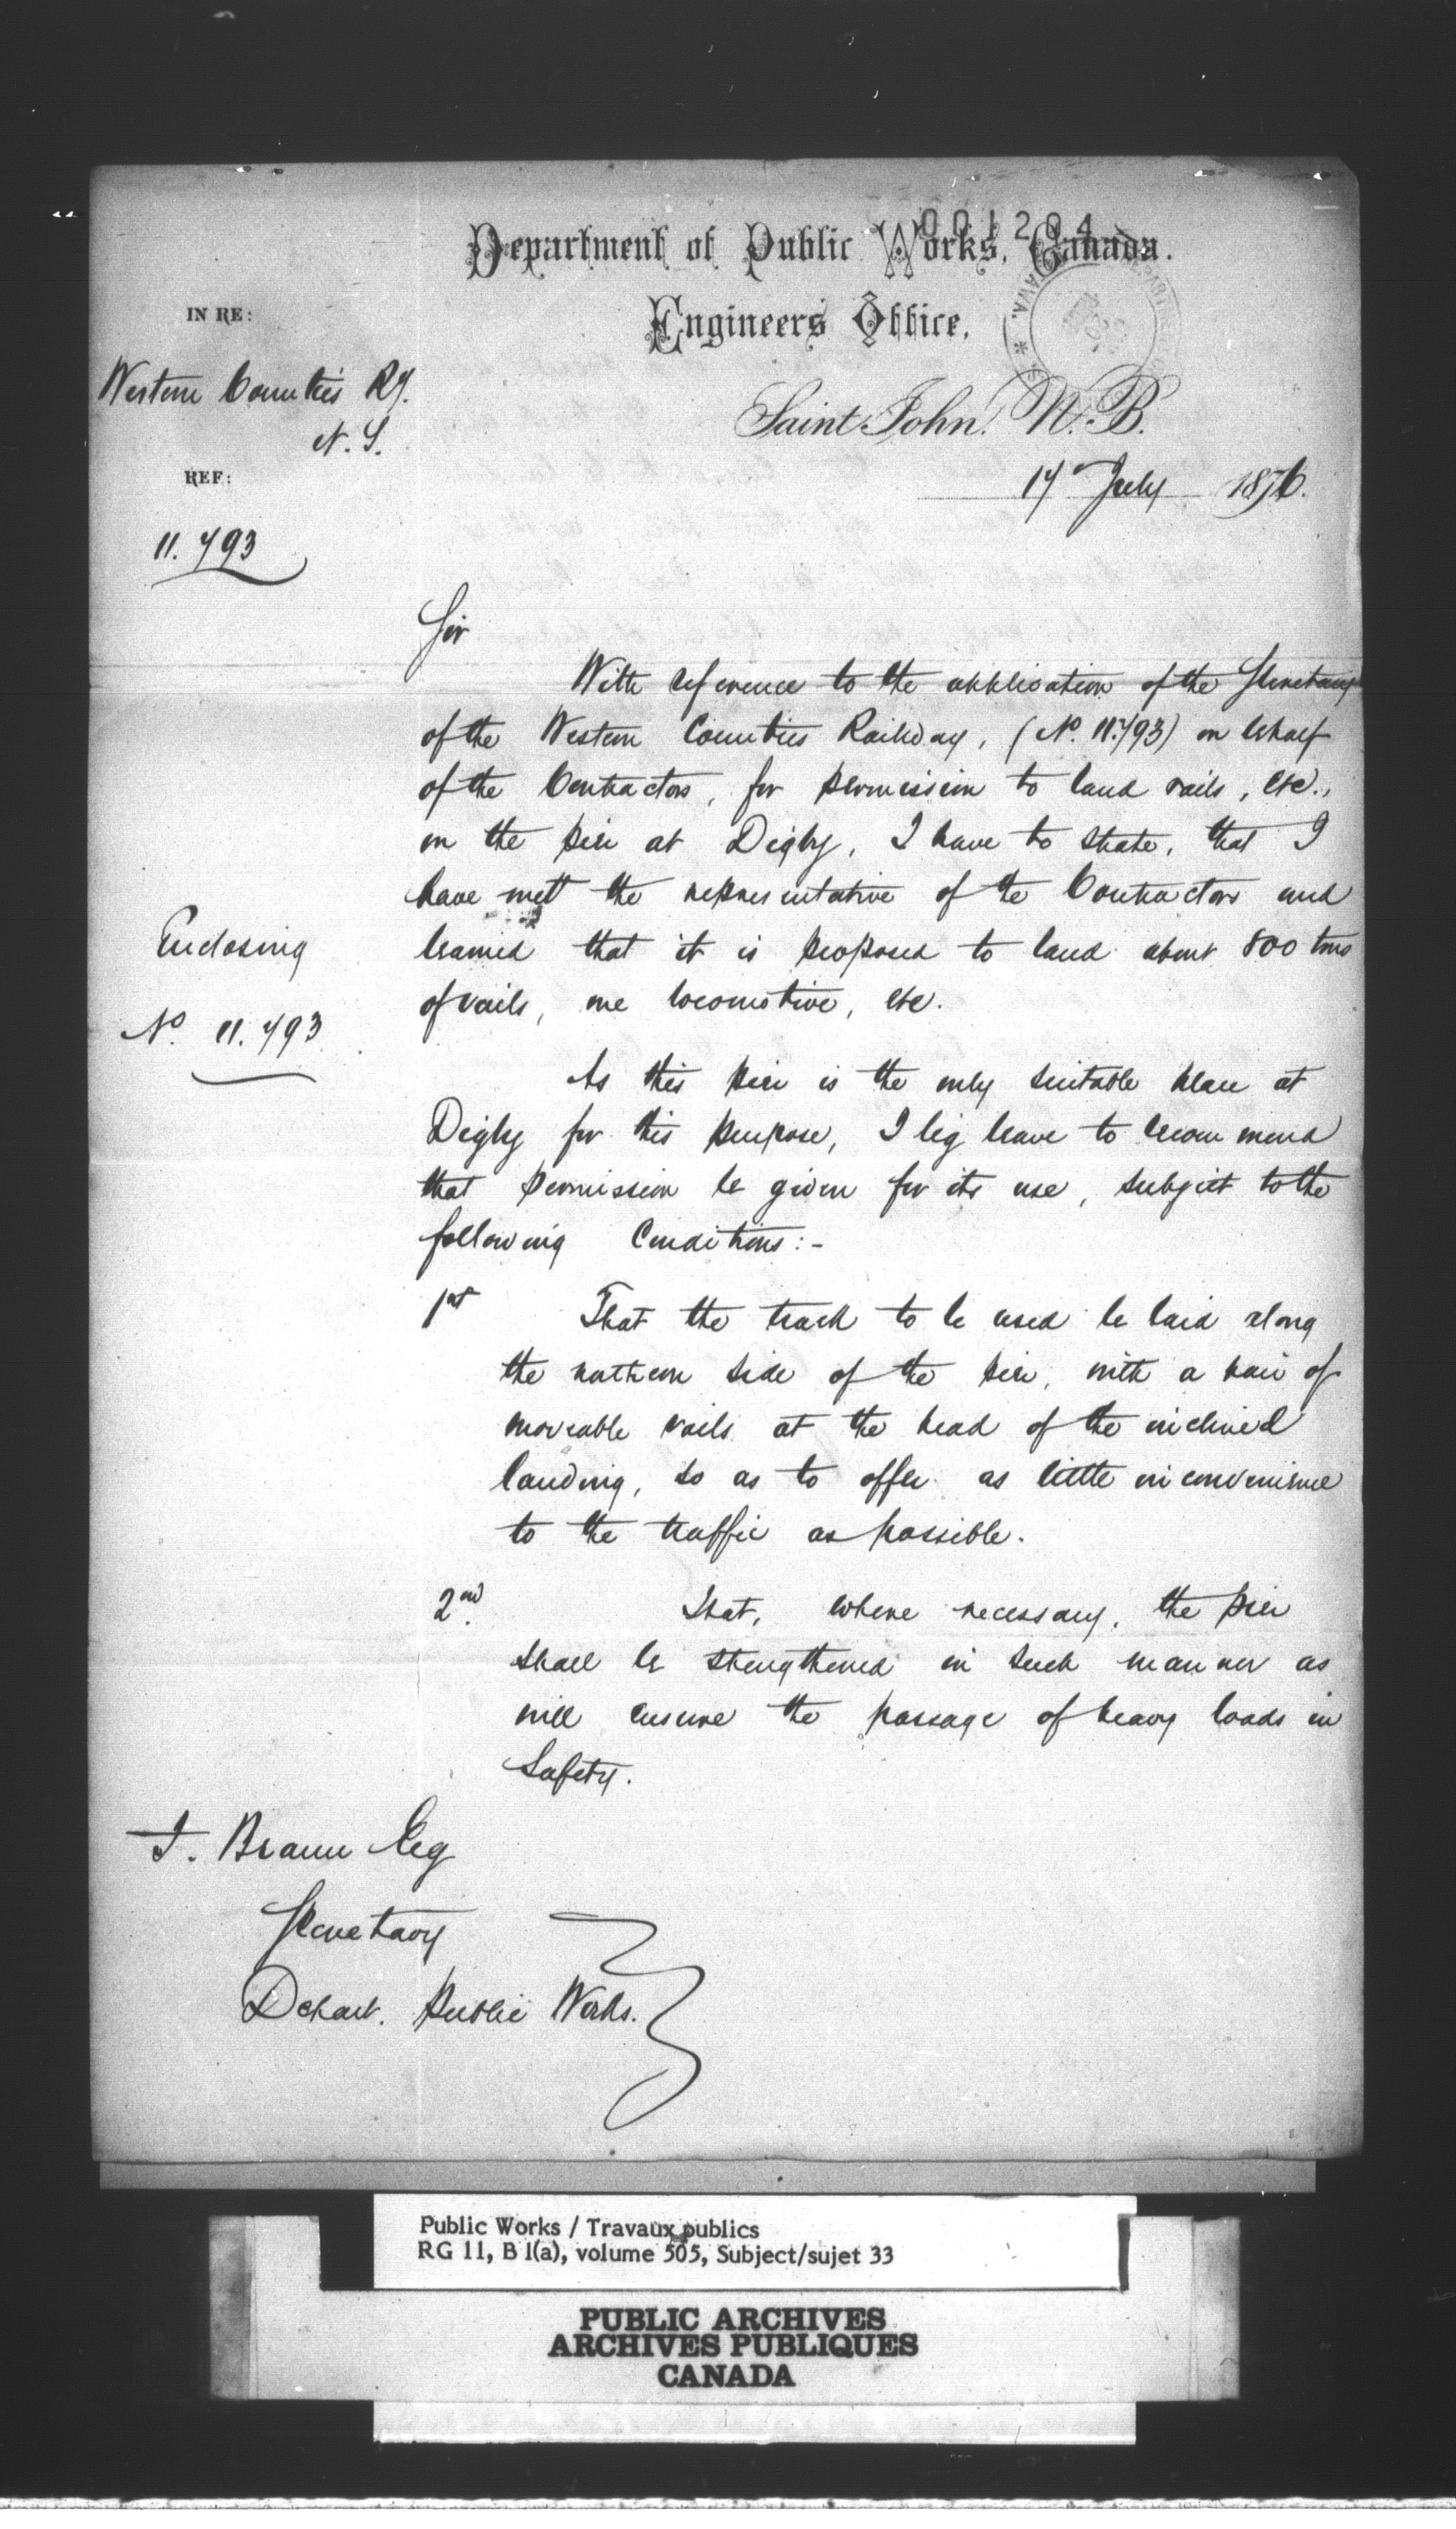 001204
Department of Public Works, Canada.
Engineers Office,
IN RE:
Western Counties Ry.
N. S.
Saint John, N.B.
17 July 1876.
REF:
11.793
Sir
With reference to the application of the Secretary
of the Western Counties Railway, (No. 11.793) on behalf
of the Contractors, for permission to land rails, etc.,
on the pier at Digby, I have to state, that I
have mett the representative of the Contractors and
learned that it is proposed to land about 800 tons
of rails, one locomotive, etc.
Enclosing
No. 11.793
As this pier is the only suitable place at
Digby for this purpose, I beg leave to recommend
that permission be given for its use, subject to the
following Conditions:-
1st That the track to be used be laid along
the northern side of the pier, with a pair of
moveable rails at the head of the inclined
landing, so as to offer as little inconvenience
to the traffic as possible.
2nd. That, where necessary, the pier
shall be strengthened in such manner as
will ensure the passage of heavy loads in
Safety.
F. Braun Esq
Secretary
Depart. Public Works.
Public Works / Travaux publics
RG 11, B 1(a), volume 505, Subject/sujet 33
PUBLIC ARCHIVES
ARCHIVES PUBLIQUES
CANADA